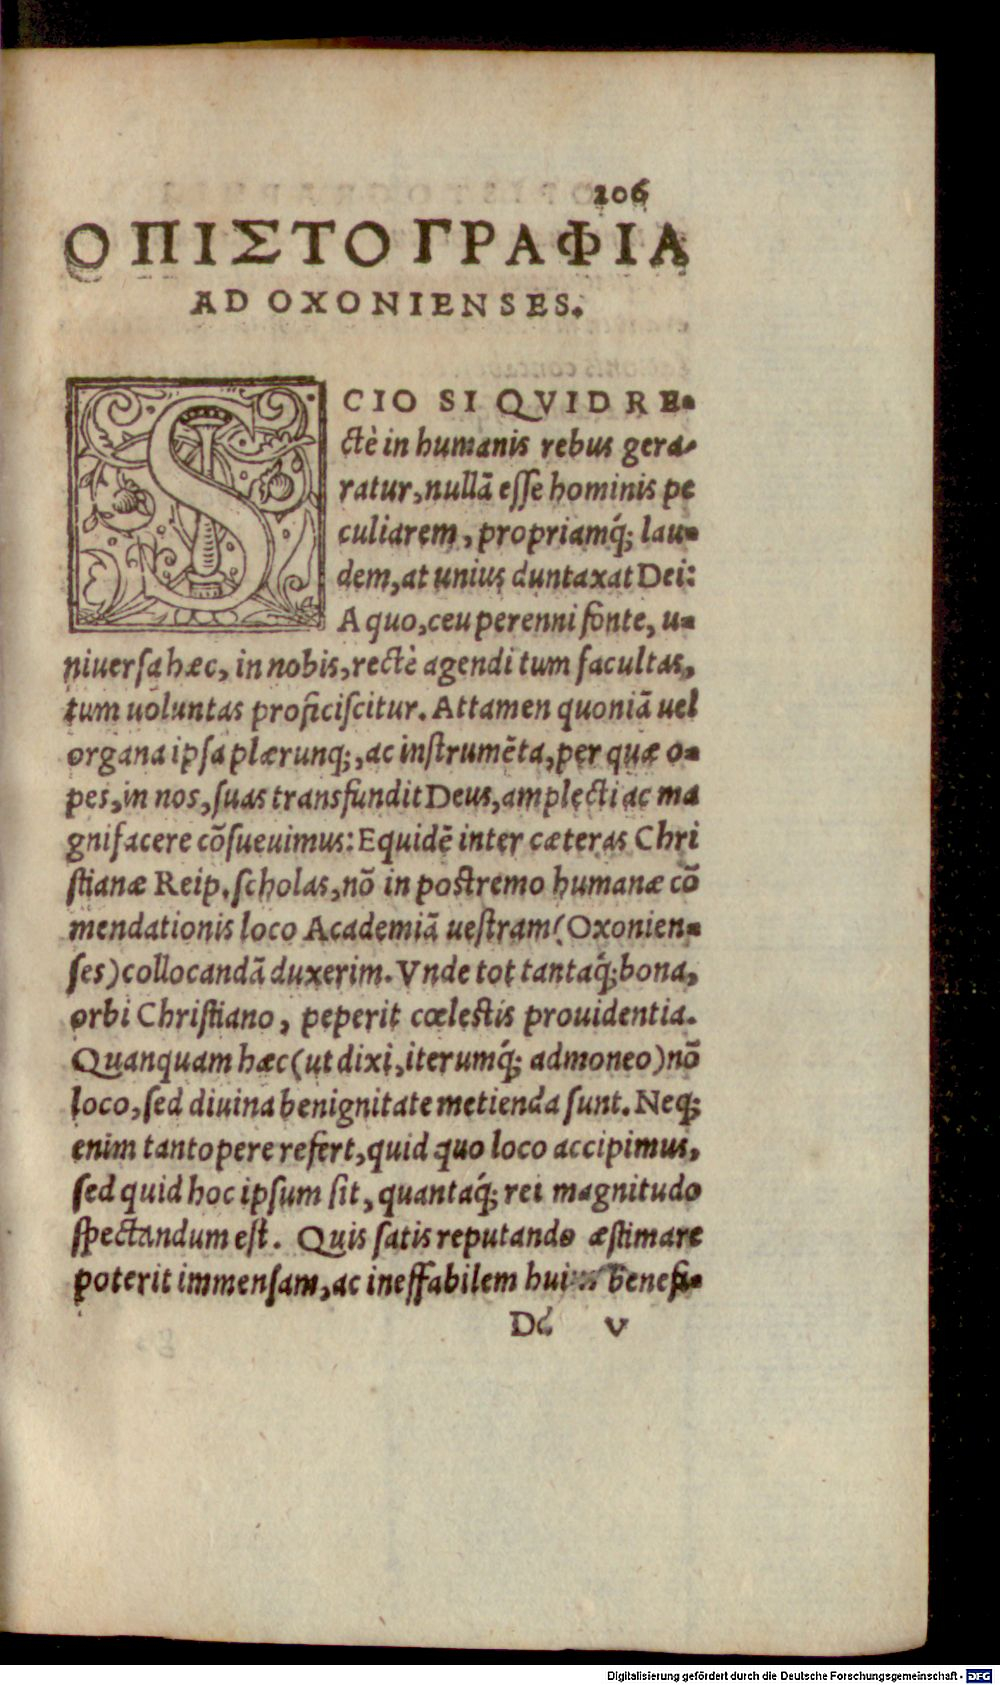 206
ΟΠΙΣΤΟΓΡΑΦΙΑ
AD OXONIENSES.
SCIO SI QVID RE-
ctè in humanis rebus gera-
ratur, nullā esse hominis pe
culiarem, propriamq́; lau-
dem, at unius duntaxat Dei:
A quo, ceu perenni fonte, u-
niuersa hæc, in nobis, rectè agendi tum facultas,
tum uoluntas proficiscitur. Attamen quoniā uel
organa ipsa plærunq;, ac instrumēta, per quæ o-
pes, in nos, suas transfundit Deus, amplecti ac ma
gnifacere cōsueuimus: Equidē inter cæteras Chri
stianæ Reip. scholas, nō in postremo humanæ cō
mendationis loco Academiā uestram (Oxonien-
ses) collocandā duxerim. Vnde tot tantaq́; bona,
orbi Christiano, peperit cœlestis prouidentia.
Quanquam hæc (ut dixi, iterumq́; admoneo) nō
loco, sed diuina benignitate metienda sunt. Neq;
enim tantopere refert, quid quo loco accipimus,
sed quid hoc ipsum sit, quantaq́; rei magnitudo
spectandum est. Quis satis reputando æstimare
poterit immensam, ac ineffabilem benefi-
Dd v
Digitalisierung gefördert durch die Deutsche Forschungsgemeinschaft - DFG